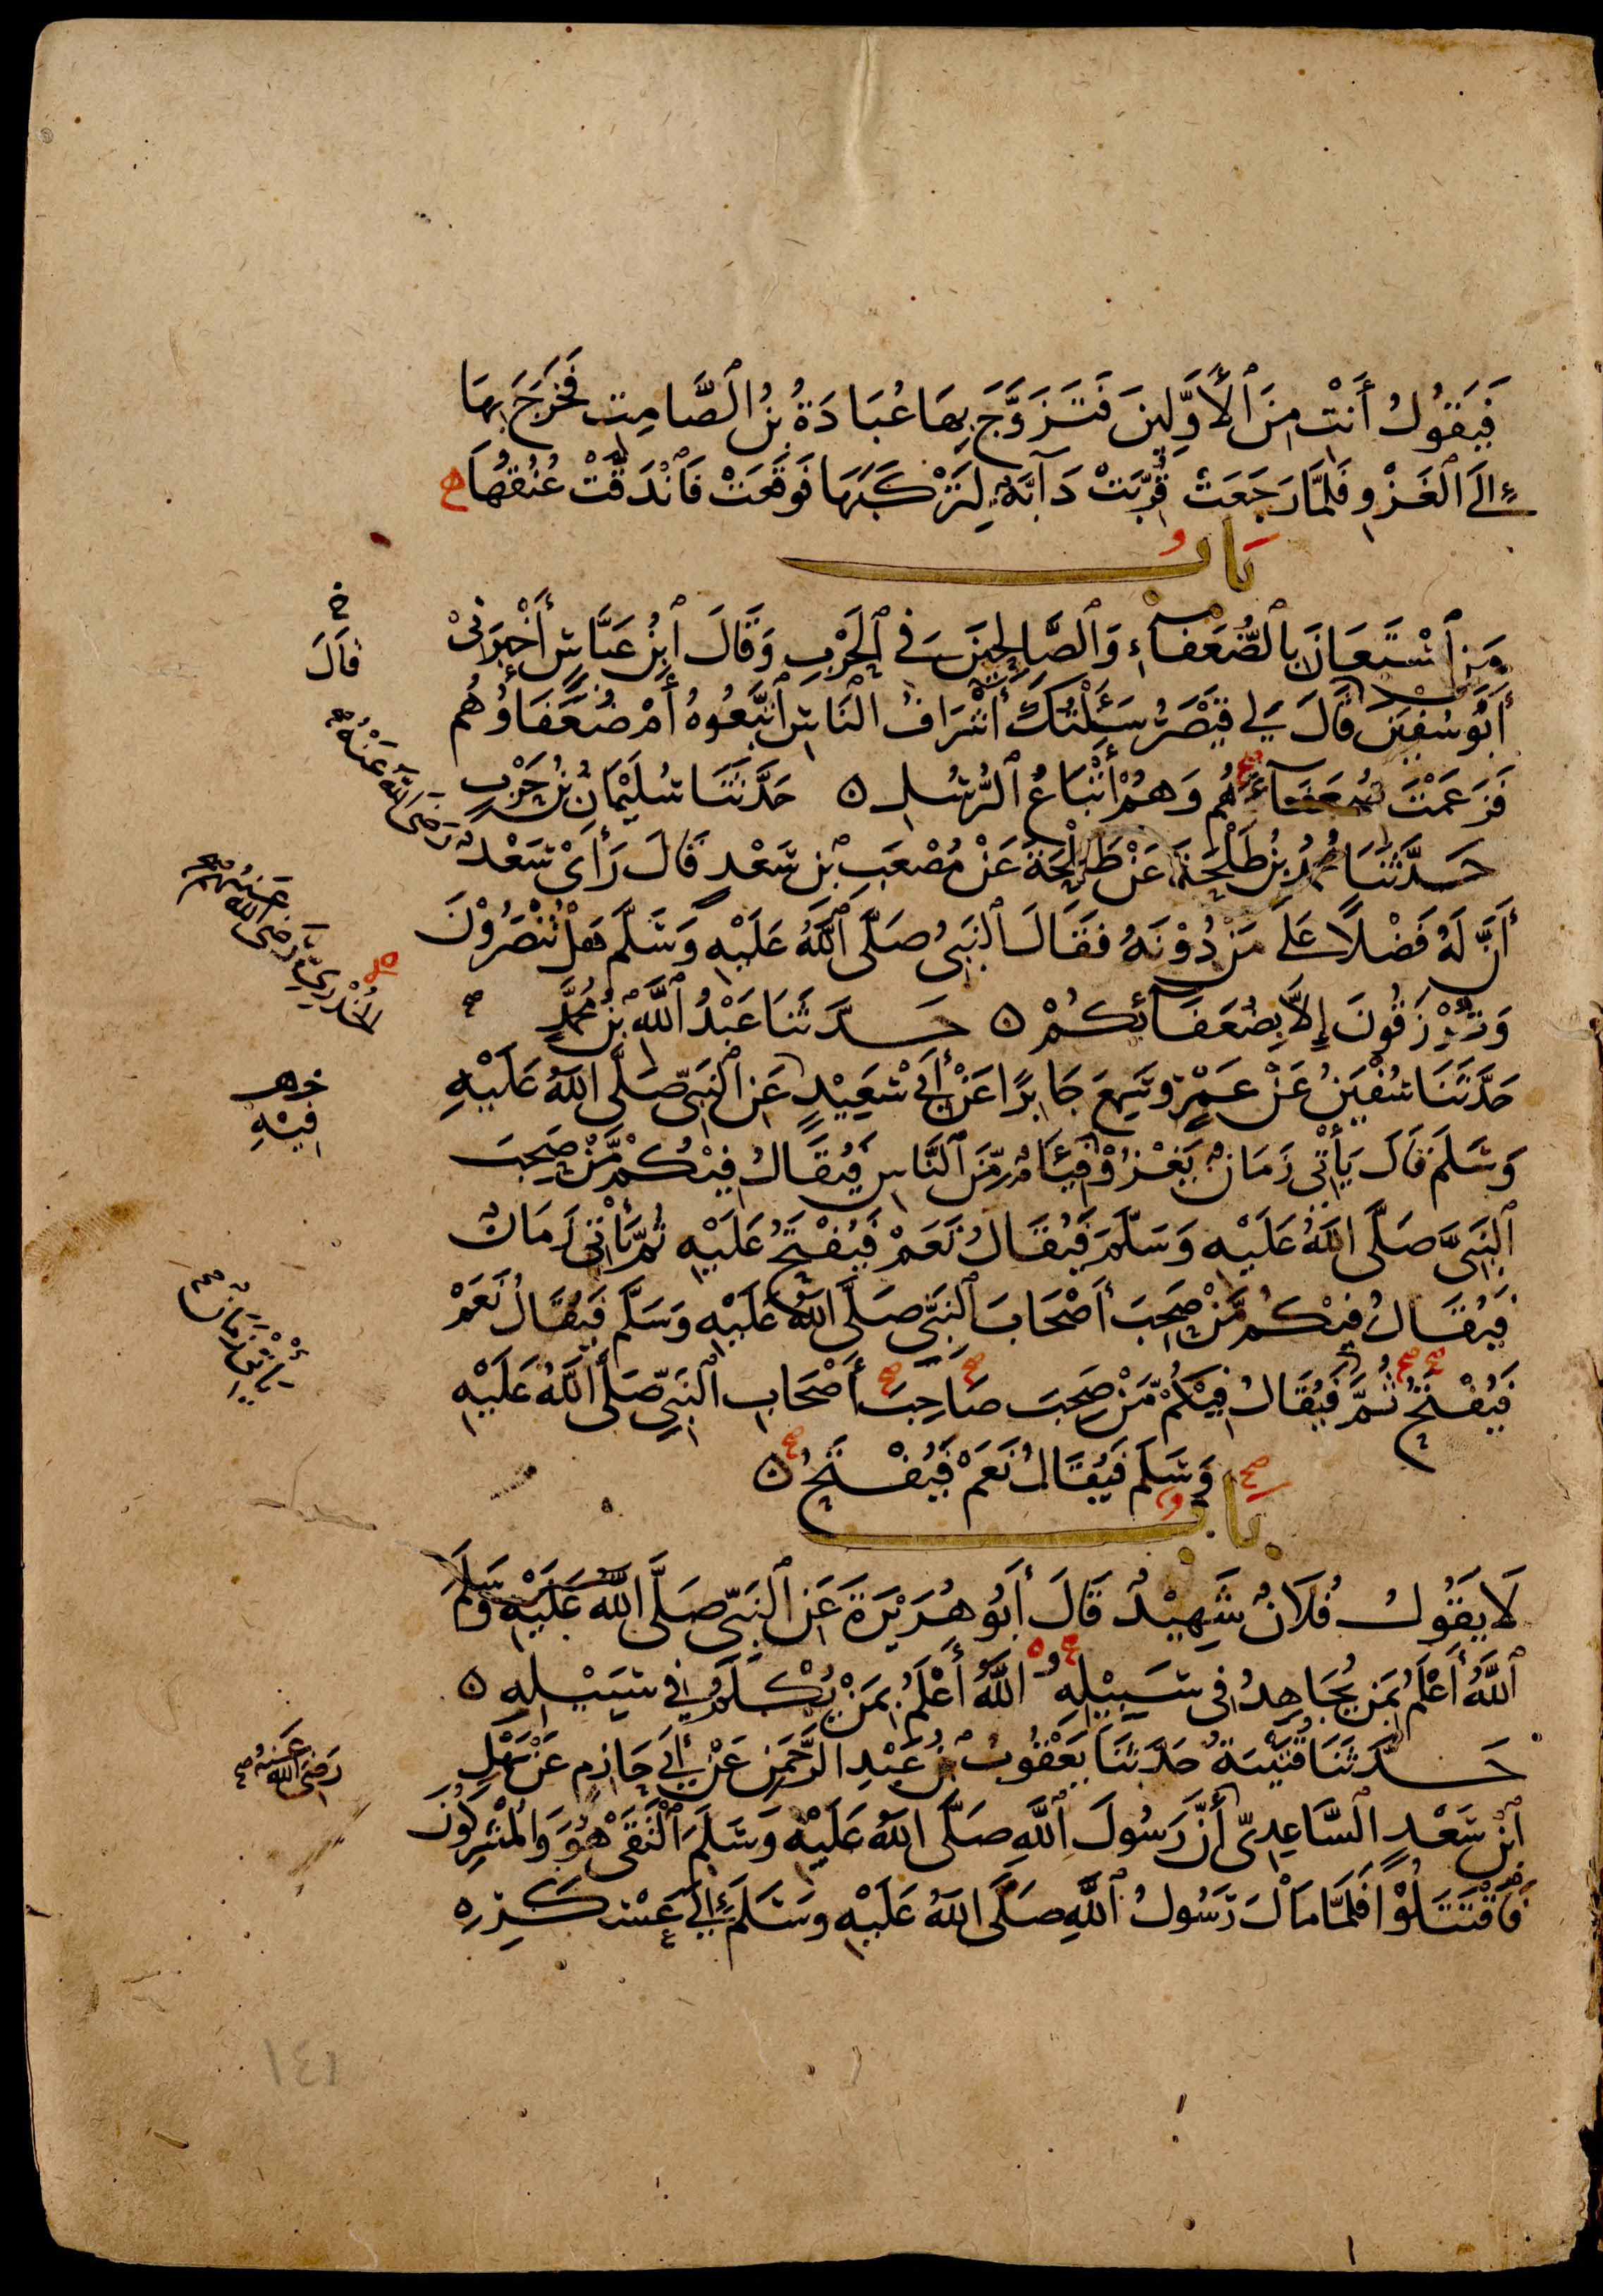 فَيَقُولُ أَنْتِ مِنَ ٱلْأَوَّلِينَ فَتَزَوَّجَ بِهَا عُبَادَةُ بْنُ الصَّامِتِ فَخَرَجَ بِهَا
إِلَى ٱلْغَزْوِ فَلَمَّا رَجَعَتْ قُرِّبَتْ دَآبَّةٌ لِتَرْكَبَهَا فَوَقَعَتْ فَٱنْدَقَّتْ عُنُقُهَا
بَابُ
مَنِ ٱسْتَعَانَ بِٱلضُّعَفَاءِ وَٱلصَّالِحِينَ فِي ٱلْحَرْبِ وَقَالَ ٱبْنُ عَبَّاسٍ أَخْبَرَنِي
أَبُو سُفْيَنَ قَالَ لِي قَيْصَرُ سَئَلْتُكَ أَشْرَافُ النَّاسِ ٱتَّبَعُوهُ أَمْ ضُعَفَاؤُهُم
فَزَعَمْتَ ضُعَفَآءَهُم وَهُمْ أَتْبَاعُ ٱلرُّسُلِ ه حَدَّثَنَا سُلَيْمَانُ بْنُ حَرْبٍ
حَدَّثَنَا مُحَمَّدُ بْنُ طَلْحَةَ عَنْ طَلْحَةَ عَنْ مُصْعَبِ بْنِ سَعْدٍ قَالَ رَأَىْ سَعْدٌ
أَنَّ لَهُ فَضْلًا عَلَى مَنْ دُوْنَهُ فَقَالَ ٱلنَّبِيُّ صَلَّى ٱللَّهُ عَلَيْهِ وَسَلَّمَ هَلْ تُنْصَرُوْنَ
وَتُرْزَقُونَ إِلَّا بِضُعَفَآئِكُمْ ه حَدَّثَنَا عَبْدُ ٱللَّهِ بْنُ مُحَمَّدٍ
حَدَّثَنَا سُفْيَنُ عَنْ عَمْرٍو سَمِعَ جَابِرًا عَنْ أَبِي سَعِيْدٍ عَنِ ٱلنَّبِيِّ صَلَّى اللَّهُ عَلَيْهِ
وَسَلَّمَ قَالَ يَأْتِي زَمَانٌ يَغْزُوْ فِئَامٌ مِّنَ ٱلنَّاسِ فَيُقَالُ فِيْكُمْ مَّنْ صَحِبَ
ٱلنَّبِيَّ صَلَّى اللَّهُ عَلَيْهِ وَسَلَّمَ فَيُقَالُ نَعَمْ فَيُفْتَحُ عَلَيْهِ ثُمَّ يَأْتِي زَمَانٌ
فَيُقَالُ فِيْكُمْ مَّنْ صَحِبَ أَصْحَابَ ٱلنَّبِيِّ صَلَّى اللَّهُ عَلَيْهِ وَسَلَّمَ فَيُقَالُ نَعَمْ
فَيُفْتَحُ ثُمَّ فَيُقَالُ فِيْكُمْ مَّنْ صَحِبَ صَاحِبَ أَصْحَابِ ٱلنَّبِيِّ صَلَّى اللَّهُ عَلَيْهِ
وَسَلَّمَ فَيُقَالُ نَعَمْ فَيُفْتَحُ ه
بَابُ
لَا يَقُولُ فُلَانٌ شَهِيْدٌ قَالَ أَبُو هُرَيْرَةَ عَنِ ٱلنَّبِيِّ صَلَّى اللَّهُ عَلَيْهِ وَسَلَّمَ
ٱللَّهُ أَعْلَمُ بِمَنْ يُجَاهِدُ فِي سَبِيْلِهِ ٱللَّهُ أَعْلَمُ بِمَنْ يُكْلَمُ فِي سَبِيْلِهِ ه
حَدَّثَنَا قُتَيْبَةُ حَدَّثَنَا يَعْقُوبُ بْنُ عَبْدِ الرَّحْمَنِ عَنْ أَبِي حَازِمٍ عَنْ سَهْلِ
ٱبْنِ سَعْدٍ ٱلسَّاعِدِيِّ أَنَّ رَسُولَ ٱللَّهِ صَلَّى اللَّهُ عَلَيْهِ وَسَلَّمَ ٱلْتَقَى هُوَ وَالْمُشْرِكُونَ
فَٱقْتَتَلُوْا فَلَمَّا مَالَ رَسُولُ ٱللَّهِ صَلَّى اللَّهُ عَلَيْهِ وَسَلَّمَ إِلَى عَسْكَرِهِ
خ
قَالَ
رَضِيَ اللَّهُ عَنْهُ
الخُدْرِيِّ رَضِيَ اللَّهُ عَنْهُم
فِيْهِ
يَأْتِي زَمَانٌ
رَضِيَ اللَّهُ عَنْهُ
١٤١